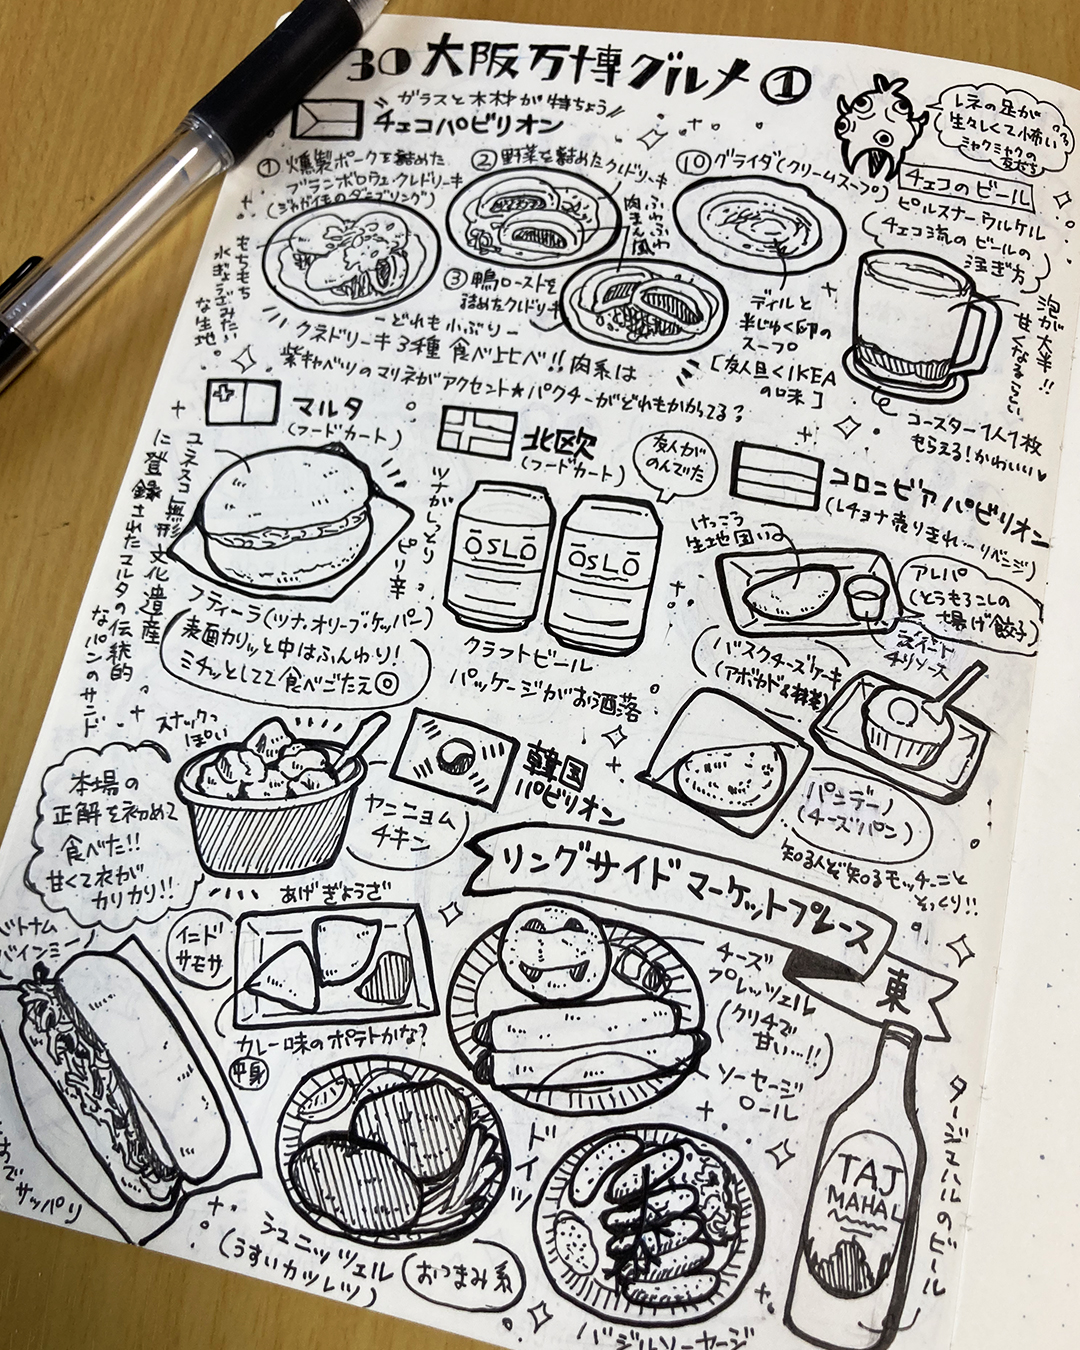 30 大阪万博グルメ①
ガラスと木材が特ちょう
チェコパビリオン
レネの足が
生々しくて小怖い
ミャクミャクの
友だち
①燻製ポークを詰めた
ブランボロヴェ・クレドリーキ
(ジャガイモのダンプリング)
もちもち
水ぎょうざみたい
な生地
②野菜を詰めたクドリーキ
ふわふわ
肉まん風
③鴨ローストを
詰めたクドリーキ
⑩グライダ(クリームスープ)
ディルと
半じゅく卵の
スープ
[友人曰くIKEA
の味]
チェコのビール
ピルスナーウルケル
(チェコ流のビールの
注ぎ方)
泡が大半!!
甘くなるらしい
コースター1人1枚
もらえる!かわいい♥
ーどれも小ぶりー
クネドリーキ3種食べ比べ!!肉系は
紫キャベツのマリネがアクセント★パクチーがどれもかかってる?
マルタ
(フードカート)
ユネスコ無形文化遺産
に登録されたマルタの伝統的
なパンのサンド
ツナがしっとりピリ辛
フティーラ(ツナ、オリーブ・ケッパー)
表面カリッと中はふんわり!
ミチッとしてて食べごたえ◎
北欧
(フードカート)
友人が
のんでた
ŌSLŌ
ŌSLŌ
クラフトビール
パッケージがお洒落
コロンビアパビリオン
(レチョナ売り切れ…リベンジ)
けっこう
生地固いの
アレパ
(とうもろこしの
揚げ餃子)
スイート
チリソース
バスクチーズケーキ
(アボカド&抹茶)
パンデーノ
(チーズパン)
知る人ぞ知るモッチーニと
そっくり!!
スナックっ
ぽい
本場の
正解を初めて
食べた!!
甘くて衣が
カリカリ!!
ヤンニョム
チキン
韓国
パビリオン
リングサイドマーケットプレース
東
ベトナム
バインミー
サッパリ
インド
サモサ
あげぎょうざ
カレー味のポテトかな?
中身
チーズ
プレッツェル
(クリチで
甘い…!!)
ソーセージ
ロール
ドイツ
シュニッツェル
(うすいカツレツ)
おつまみ系
バジルソーセージ
TAJ
MAHAL
タージマハルのビール